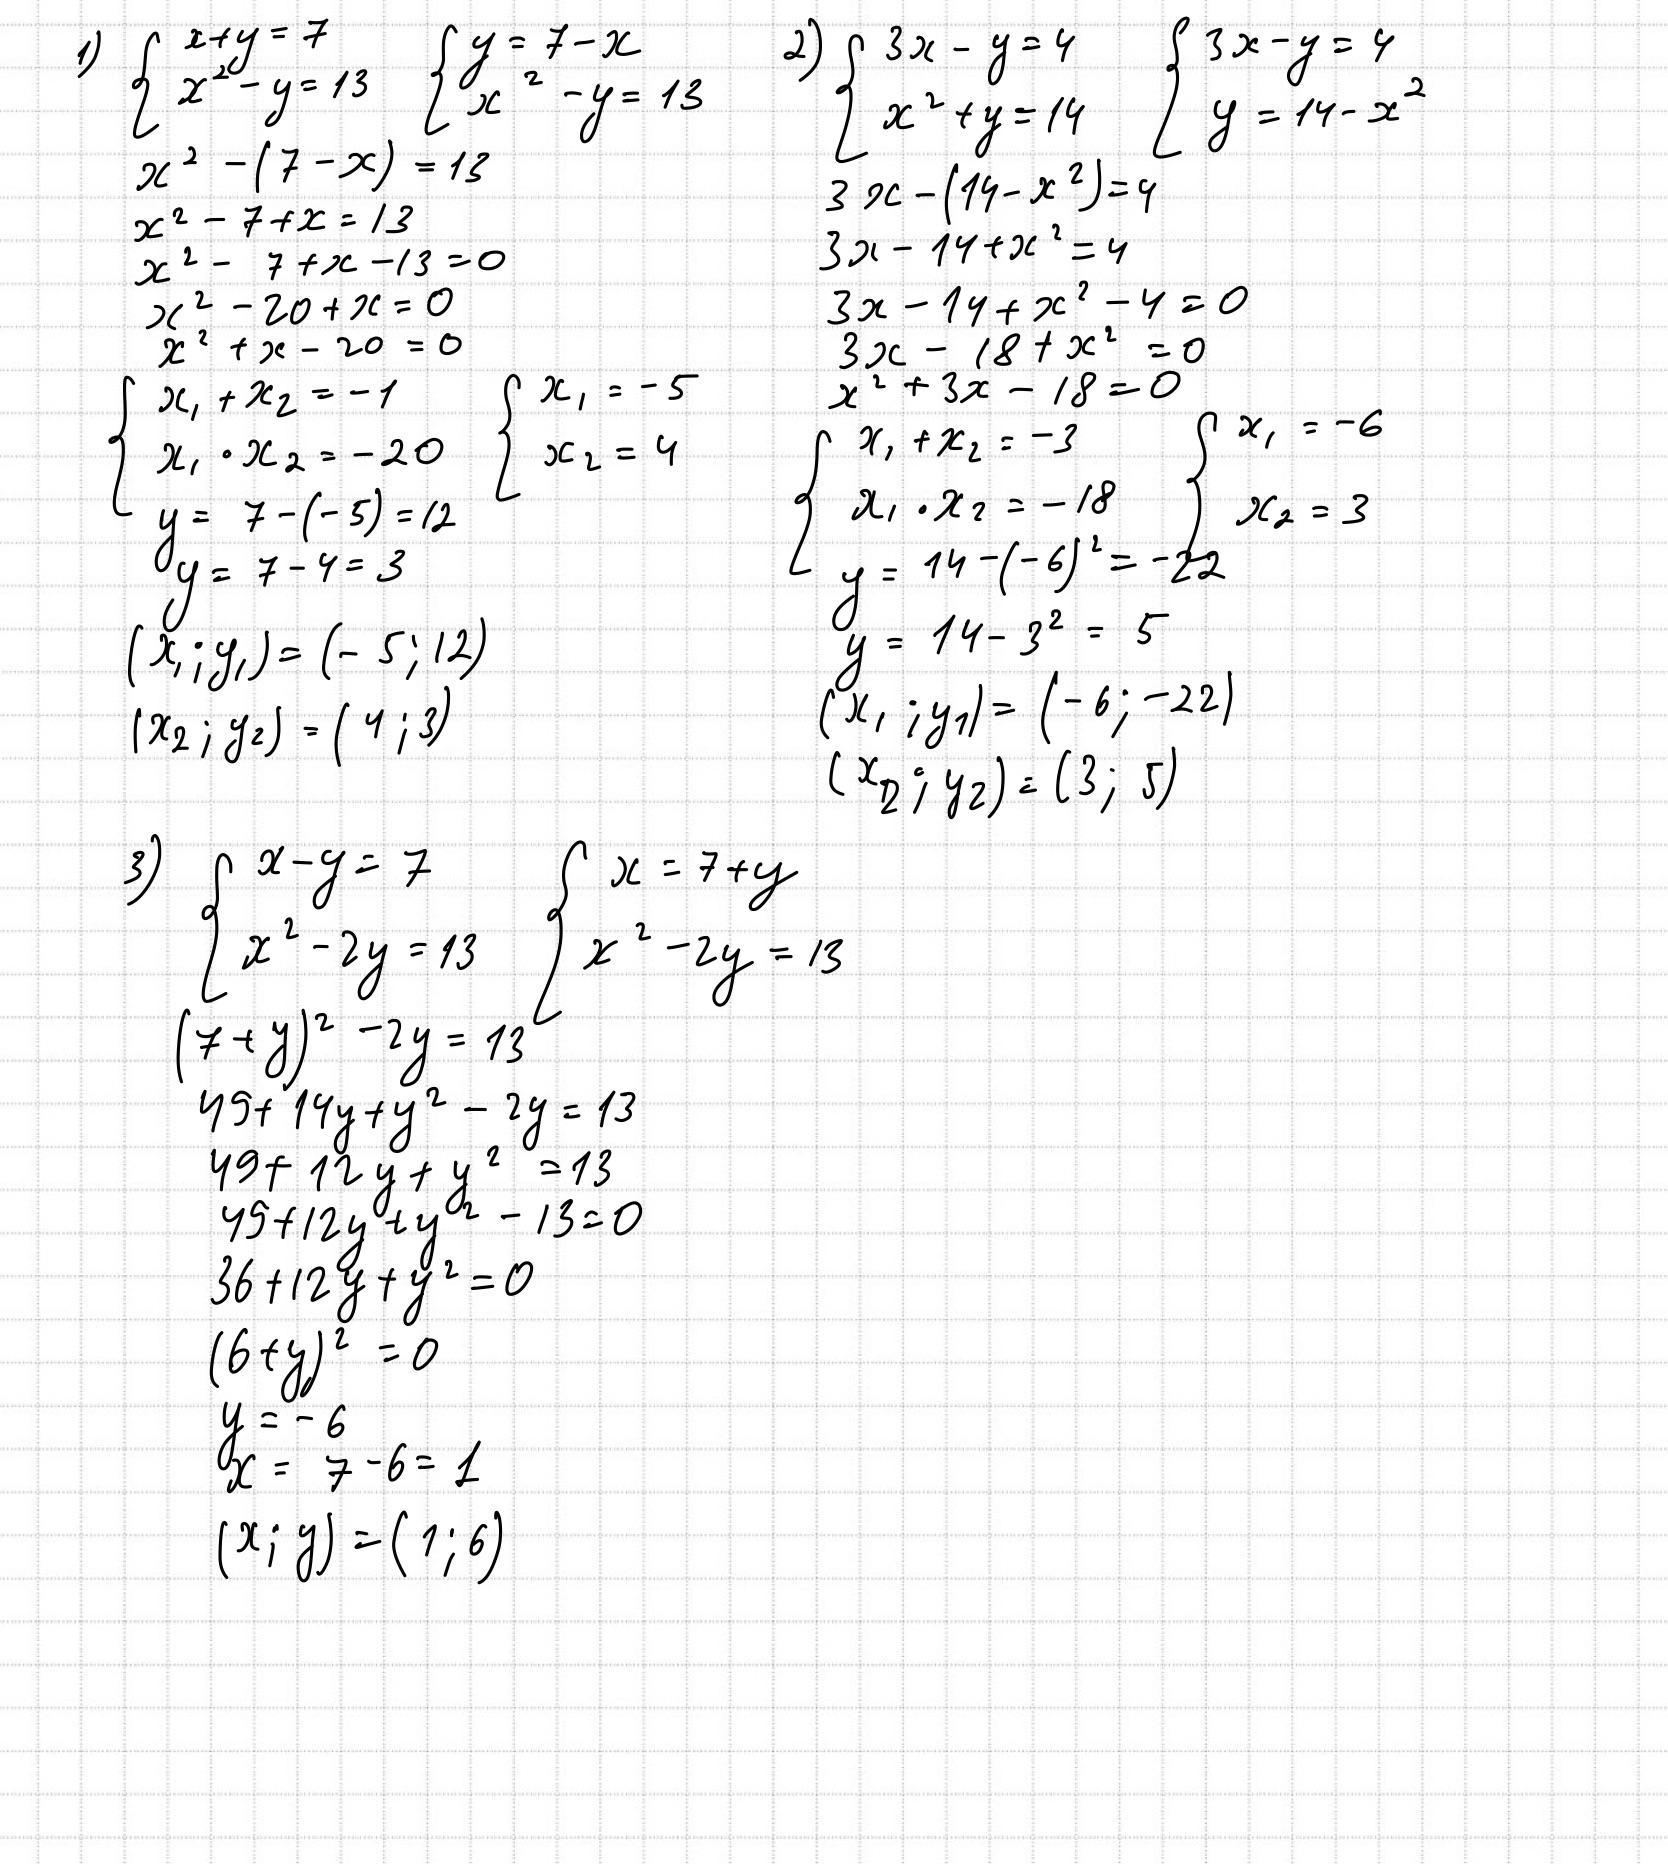 1) { x+y=7    { y=7-x
x²-y=13    x²-y=13
x²-(7-x)=13
x²-7+x=13
x²-7+x-13=0
x²-20+x=0
x²+x-20=0
{ x₁+x₂=-1    { x₁=-5
x₁·x₂=-20    x₂=4
y=7-(-5)=12
y=7-4=3
(x₁;y₁)=(-5;12)
(x₂;y₂)=(4;3)
2) { 3x-y=4    { 3x-y=4
x²+y=14    y=14-x²
3x-(14-x²)=4
3x-14+x²=4
3x-14+x²-4=0
3x-18+x²=0
x²+3x-18=0
{ x₁+x₂=-3    { x₁=-6
x₁·x₂=-18    x₂=3
y=14-(-6)²=-22
y=14-3²=5
(x₁;y₁)=(-6;-22)
(x₂;y₂)=(3;5)
3) { x-y=7    { x=7+y
x²-2y=13    x²-2y=13
(7+y)²-2y=13
49+14y+y²-2y=13
49+12y+y²=13
49+12y+y²-13=0
36+12y+y²=0
(6+y)²=0
y=-6
x=7-6=1
(x;y)=(1;6)